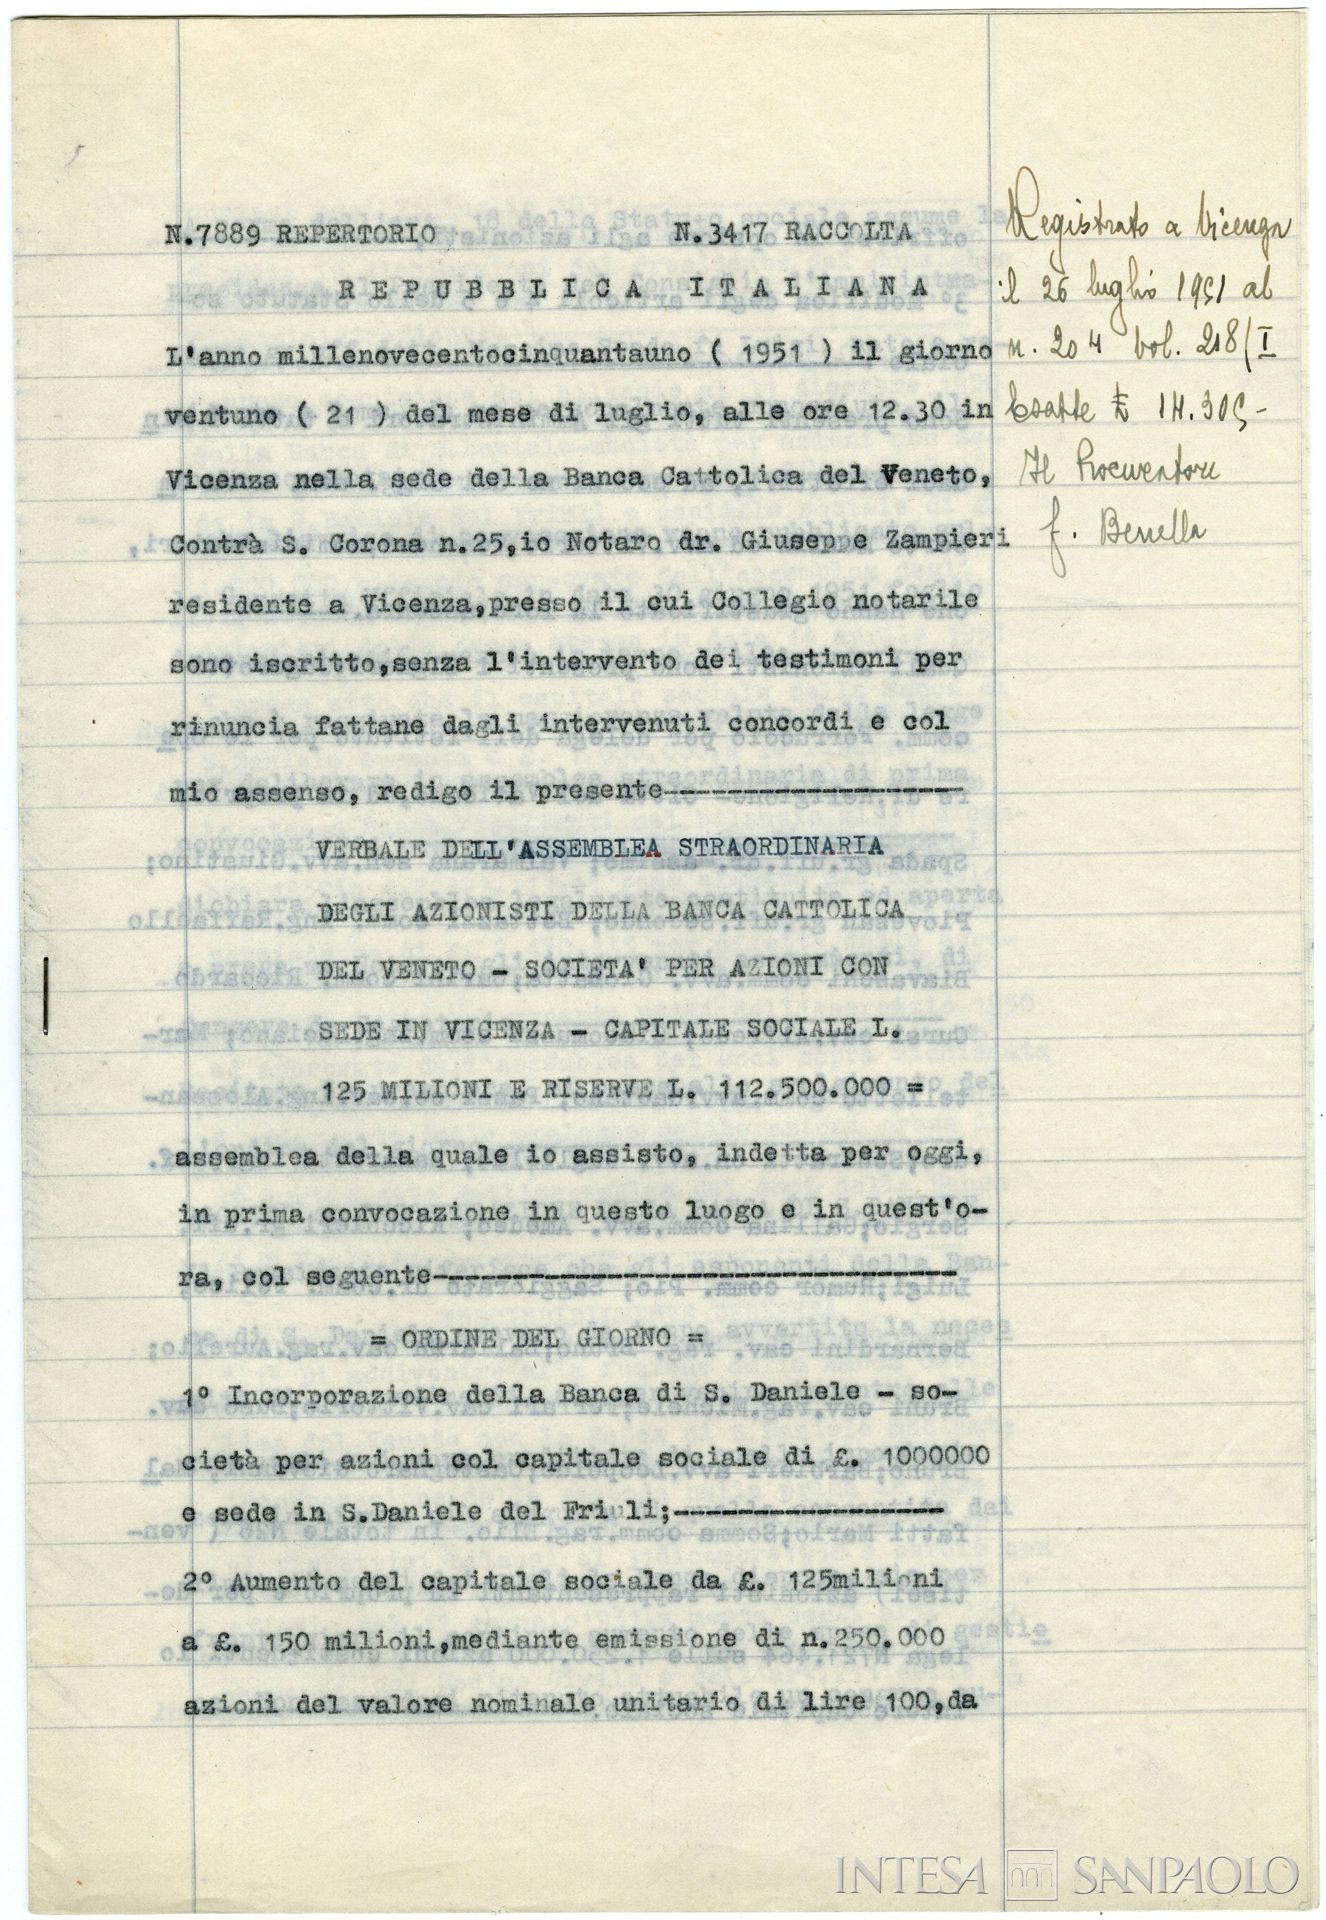 N.7889 REPERTORIO N.3417 RACCOLTA
REPUBBLICA ITALIANA
L'anno millenovecentocinquantauno ( 1951 ) il giorno
ventuno ( 21 ) del mese di luglio, alle ore 12.30 in
Vicenza nella sede della Banca Cattolica del Veneto,
Contrà S. Corona n.25,io Notaro dr. Giuseppe Zampieri
residente a Vicenza,presso il cui Collegio notarile
sono iscritto,senza l'intervento dei testimoni per
rinuncia fattane dagli intervenuti concordi e col
mio assenso, redigo il presente-------------------
VERBALE DELL'ASSEMBLEA STRAORDINARIA
DEGLI AZIONISTI DELLA BANCA CATTOLICA
DEL VENETO - SOCIETA' PER AZIONI CON
SEDE IN VICENZA - CAPITALE SOCIALE L.
125 MILIONI E RISERVE L. 112.500.000 =
assemblea della quale io assisto, indetta per oggi,
in prima convocazione in questo luogo e in quest'o-
ra, col seguente---------------------------------
= ORDINE DEL GIORNO =
1° Incorporazione della Banca di S. Daniele - so-
cietà per azioni col capitale sociale di £. 1000000
e sede in S.Daniele del Friuli;-----------------
2° Aumento del capitale sociale da £. 125milioni
a £. 150 milioni,mediante emissione di n.250.000
azioni del valore nominale unitario di lire 100,da
Registrato a Vicenza
il 26 luglio 1951 al
n. 204 vol. 218/I
Esatte £ 14.305-
Il Procuratore
f.
INTESA SANPAOLO